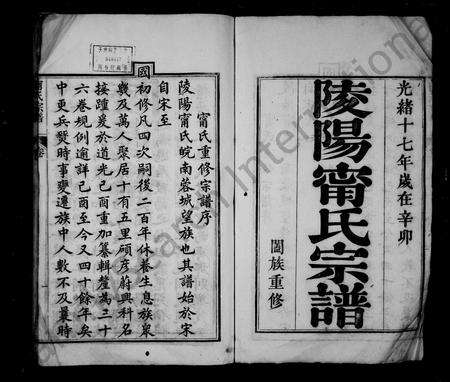 光緒十七年歲在辛卯
陵陽甯氏宗譜
闔族重修
國
甯氏重修宗譜序
陵陽甯氏皖南蓉城望族也其譜始於宋
自宋至
國初修凡四次嗣後二百年休養生息族衆
幾及萬人聚居十有五里碩彥蔚興科名
接踵爰於道光己酉重加纂輯釐為三十
六卷規例逾詳己酉至今又四十餘年矣
中更兵燹時事變遷族中人數不及曩時